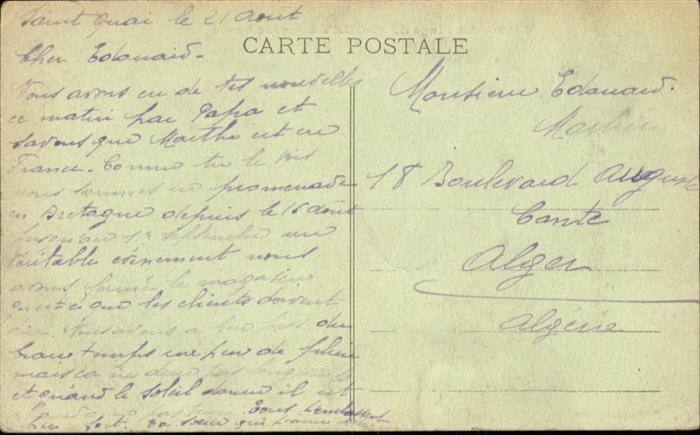 Saint Quai le 21 août
Cher Edouard.
Nous avons eu de tes nouvelles
ce matin par Papa et
savons que Marthe est en
France. Comme tu le vois
nous sommes en promenade
en Bretagne depuis le 16 août
jusqu'au 1er septembre un
véritable évènement nous
avons fermé le magasin
que les clients doivent
Nous avons
beau temps un peu de pluie
mais ça ne dure pas longtemps
et quand le soleil donne il est
Tous t'embrassent
bien fort. ta soeur qui t'aime
CARTE POSTALE
Monsieur Edouard.
18 Boulevard Auguste
Comte
Alger
Algérie